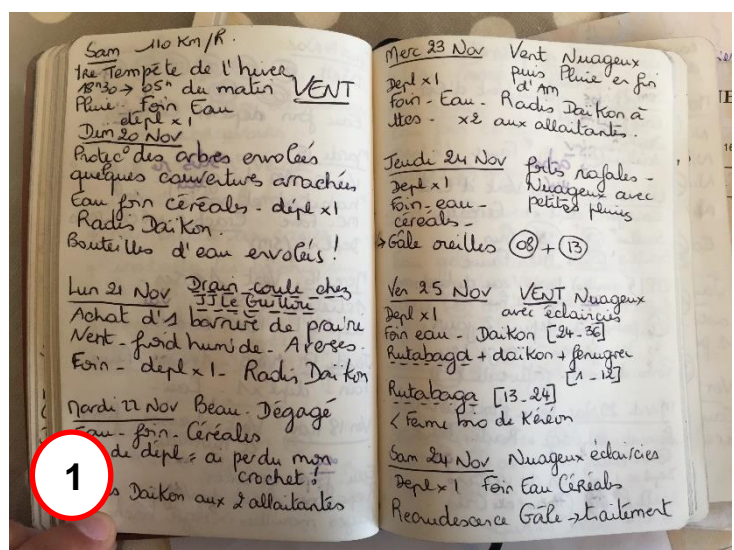 Sam 110 Km/h.
1re Tempête de l'hiver
18h30 → 05h du matin VENT
Pluie. Foin Eau
dépl x1
Dim 20 Nov
Protec° des arbres envolées
quelques couvertures arrachées
Eau foin céréales - dépl x1
Radis Daïkon.
Bouteilles d'eau envolés !
Lun 21 Nov Drain coule chez
JJ Le Guillou
Achat d'1 barrière de prairie
Vent - froid humide - Averses.
Foin - depl x1 - Radis Daïkon
Mardi 22 Nov Beau - Dégagé
Eau - foin - Céréales
de dépl = ai perdu mon
crochet !
Daïkon aux 2 allaitantes
Merc 23 Nov Vent Nuageux
puis Pluie en fin
d'AM
Depl x1
Foin - Eau - Radis Daïkon à
ttes - x2 aux allaitantes.
Jeudi 24 Nov forts rafales -
Nuageux avec
petites pluies
Depl x1
Foin - eau -
céréals -
→ Gâle oreilles 08 + 13
Ven 25 Nov VENT Nuageux
avec éclaircies
Depl x1
Foin eau - Daikon [24-36]
Rutabaga + daïkon + fenugrec
[1-12]
Rutabaga [13-24]
< Ferme bio de Kéréon
Sam 24 Nov Nuageux éclaircies
Depl x1 Foin Eau Céréals
Recrudescence Gâle → traitement
1